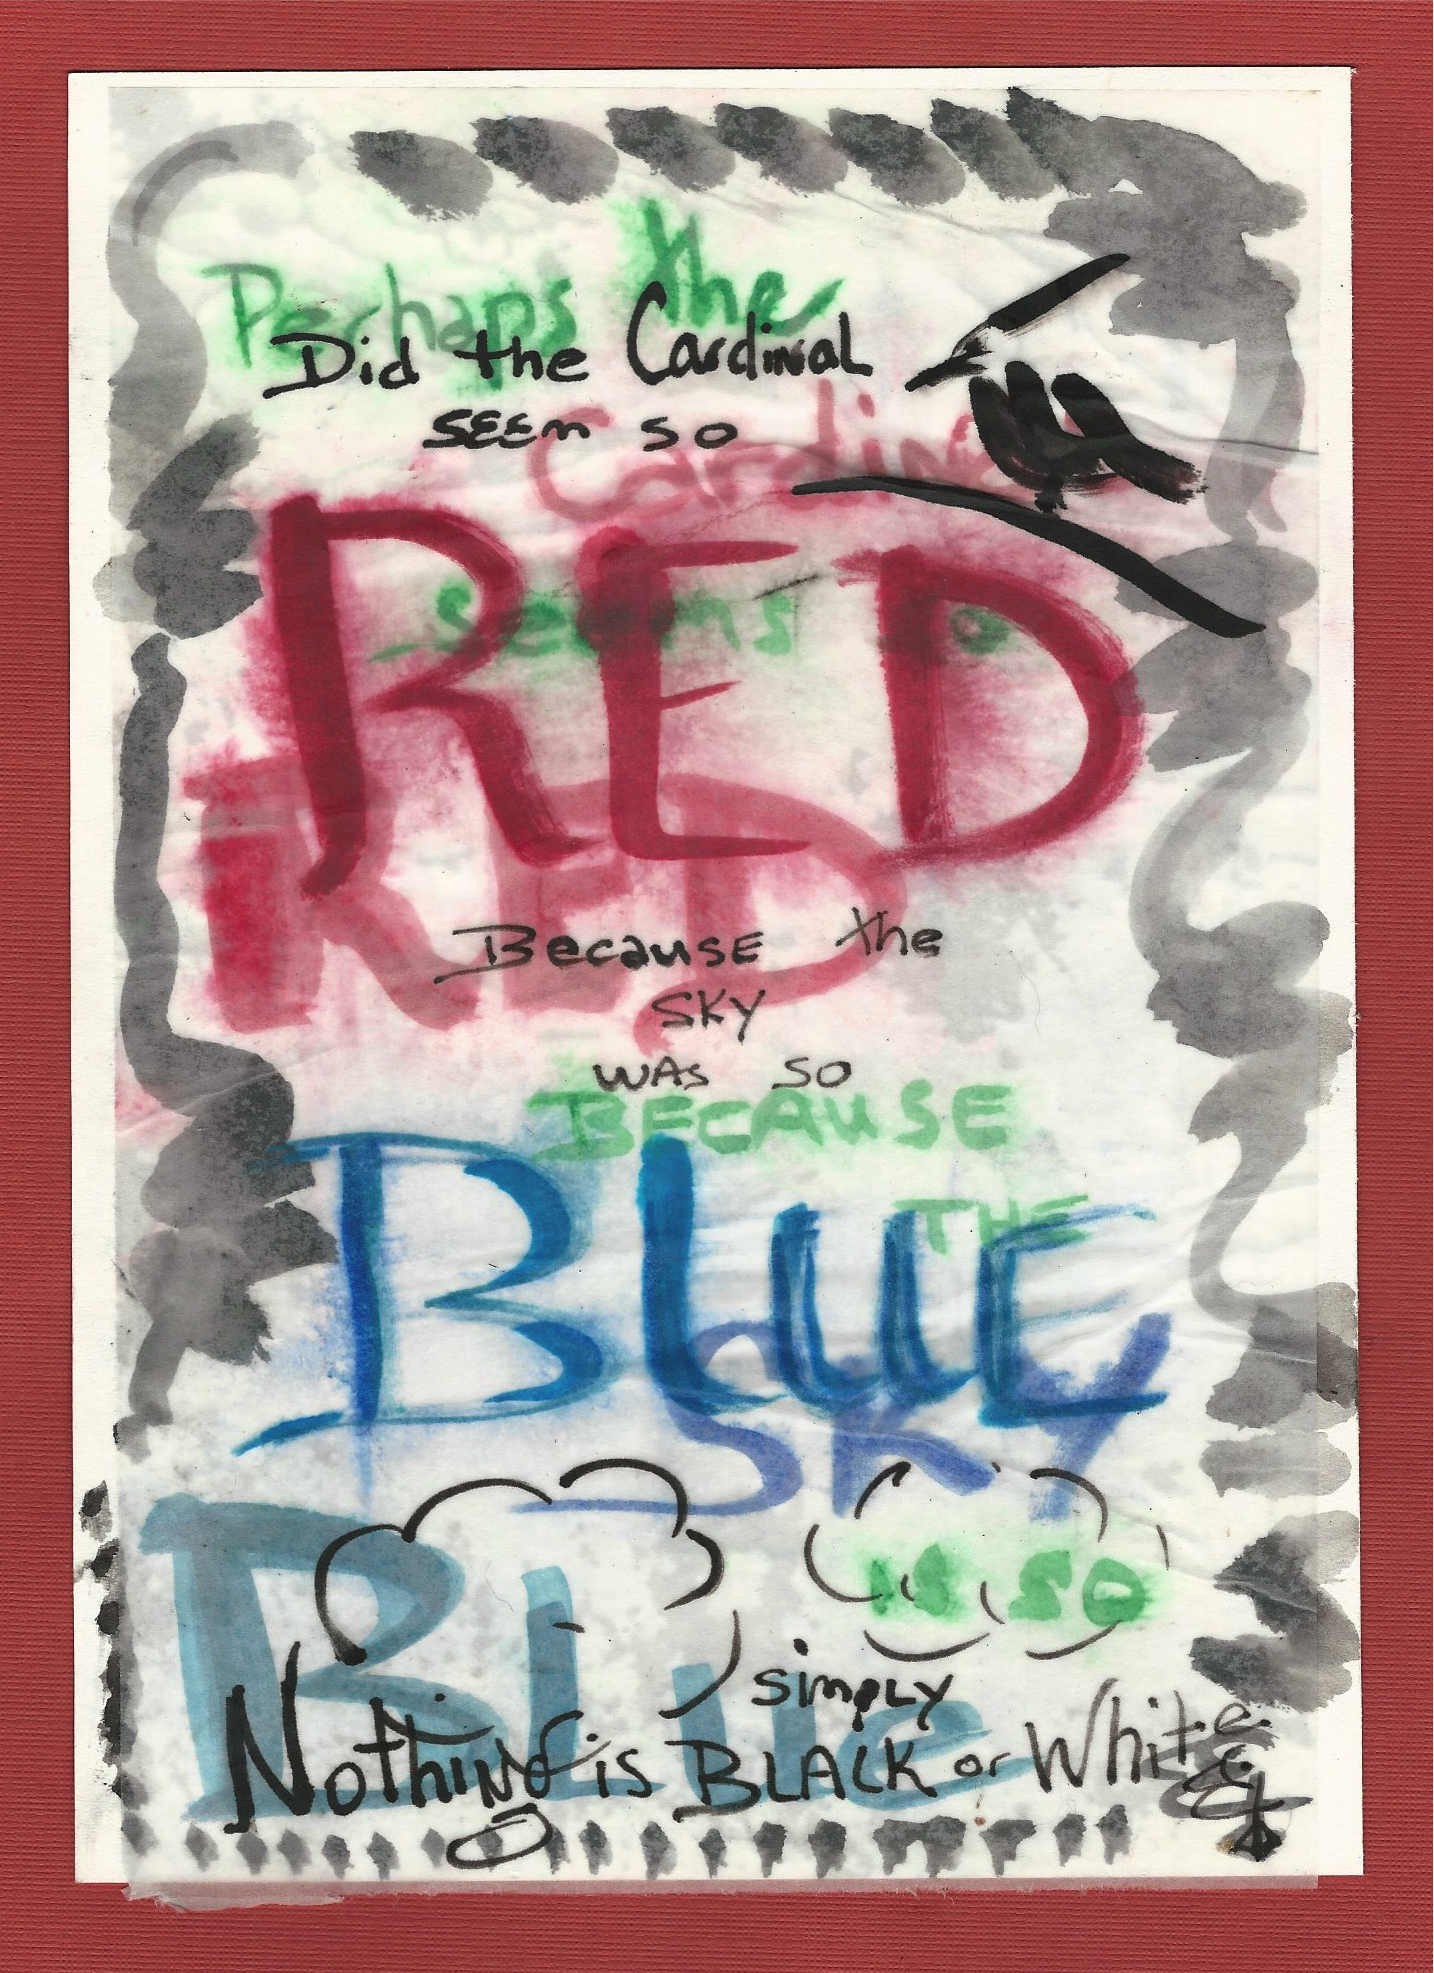 Perhaps the
Did the Cardinal
SEEm SO
Cardin
RED
seems so
RED
Because the
SKY
WAS SO
BECAUSE
BLUE
THE
SKY
is so
BLue
simply
Nothing is BLACK or White